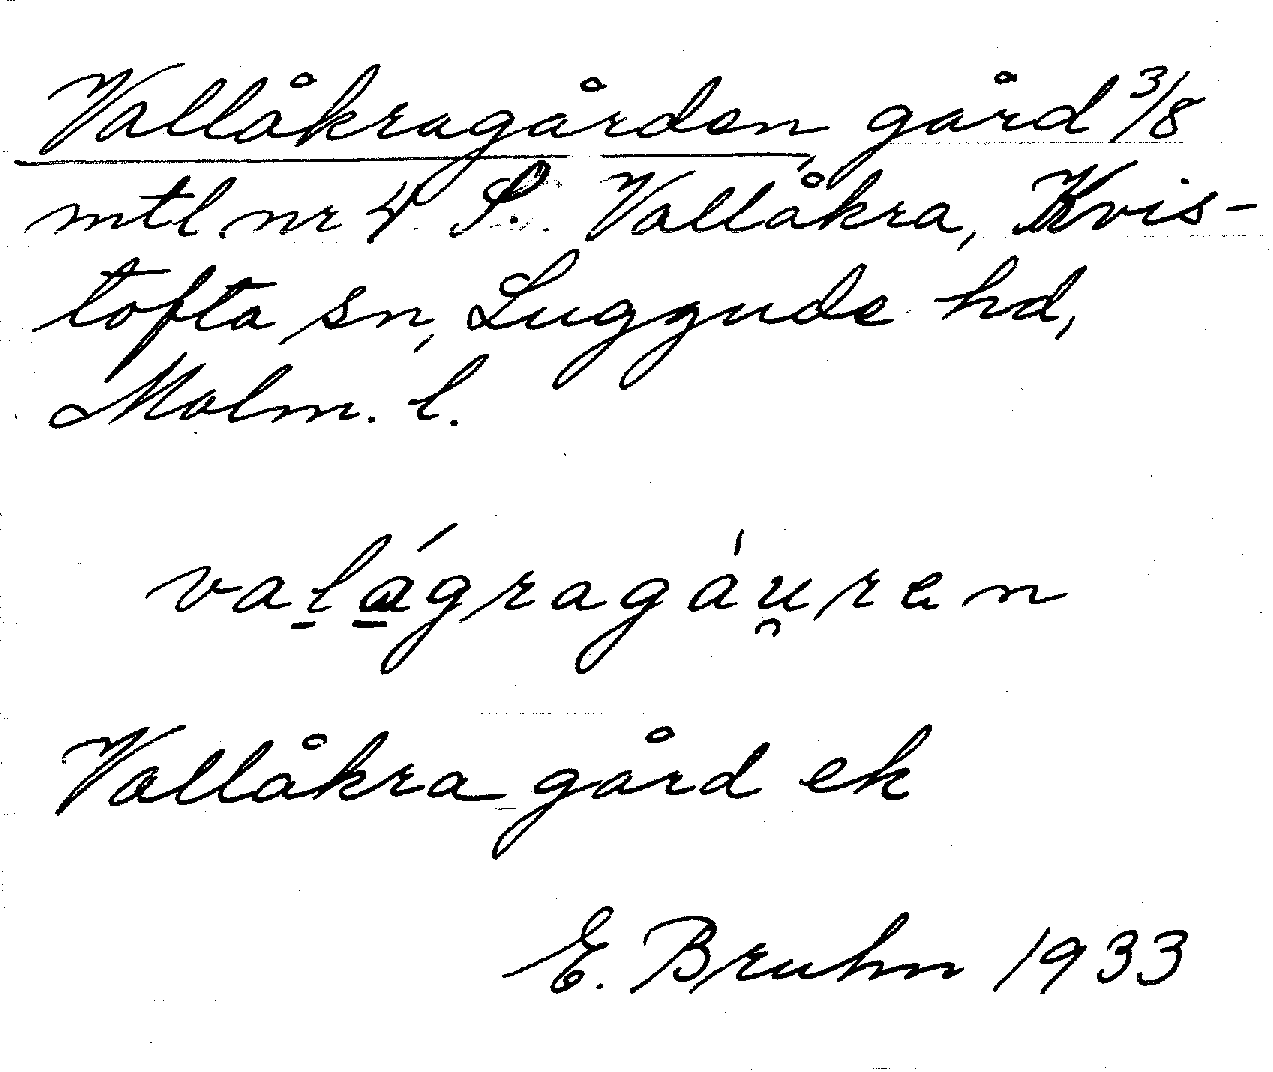 Vallåkragården gård 3/8
mtl nr 4 S. Vallåkra, Kvis-
tofta sn, Luggude hd,
Malm. l.
valágragáu̯ren
Vallåkra gård ek
E. Bruhn 1933